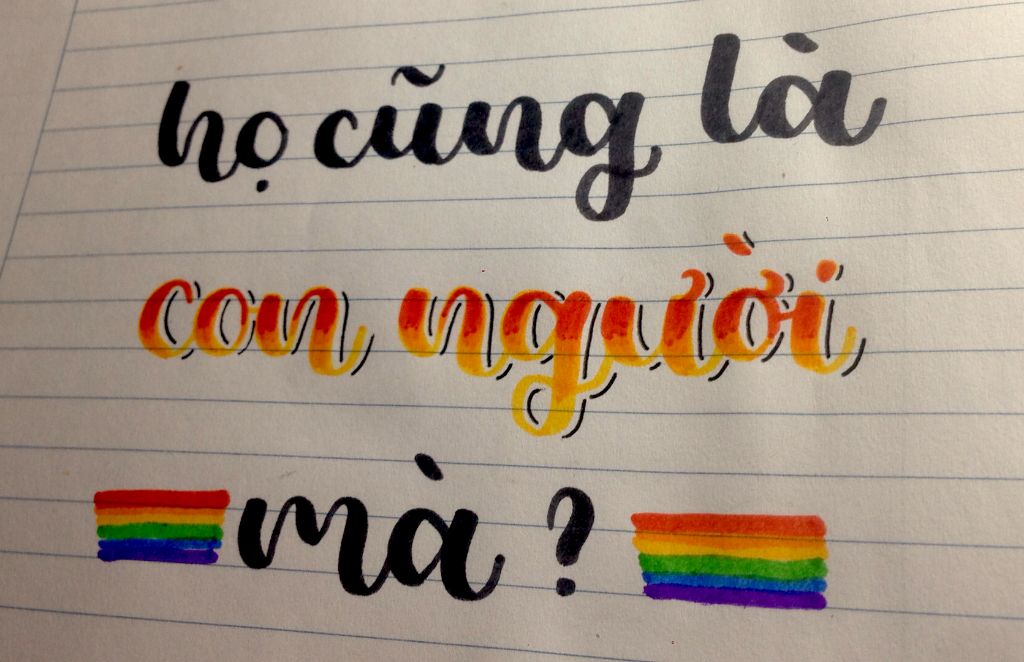 họ cũng là
con người
mà ?